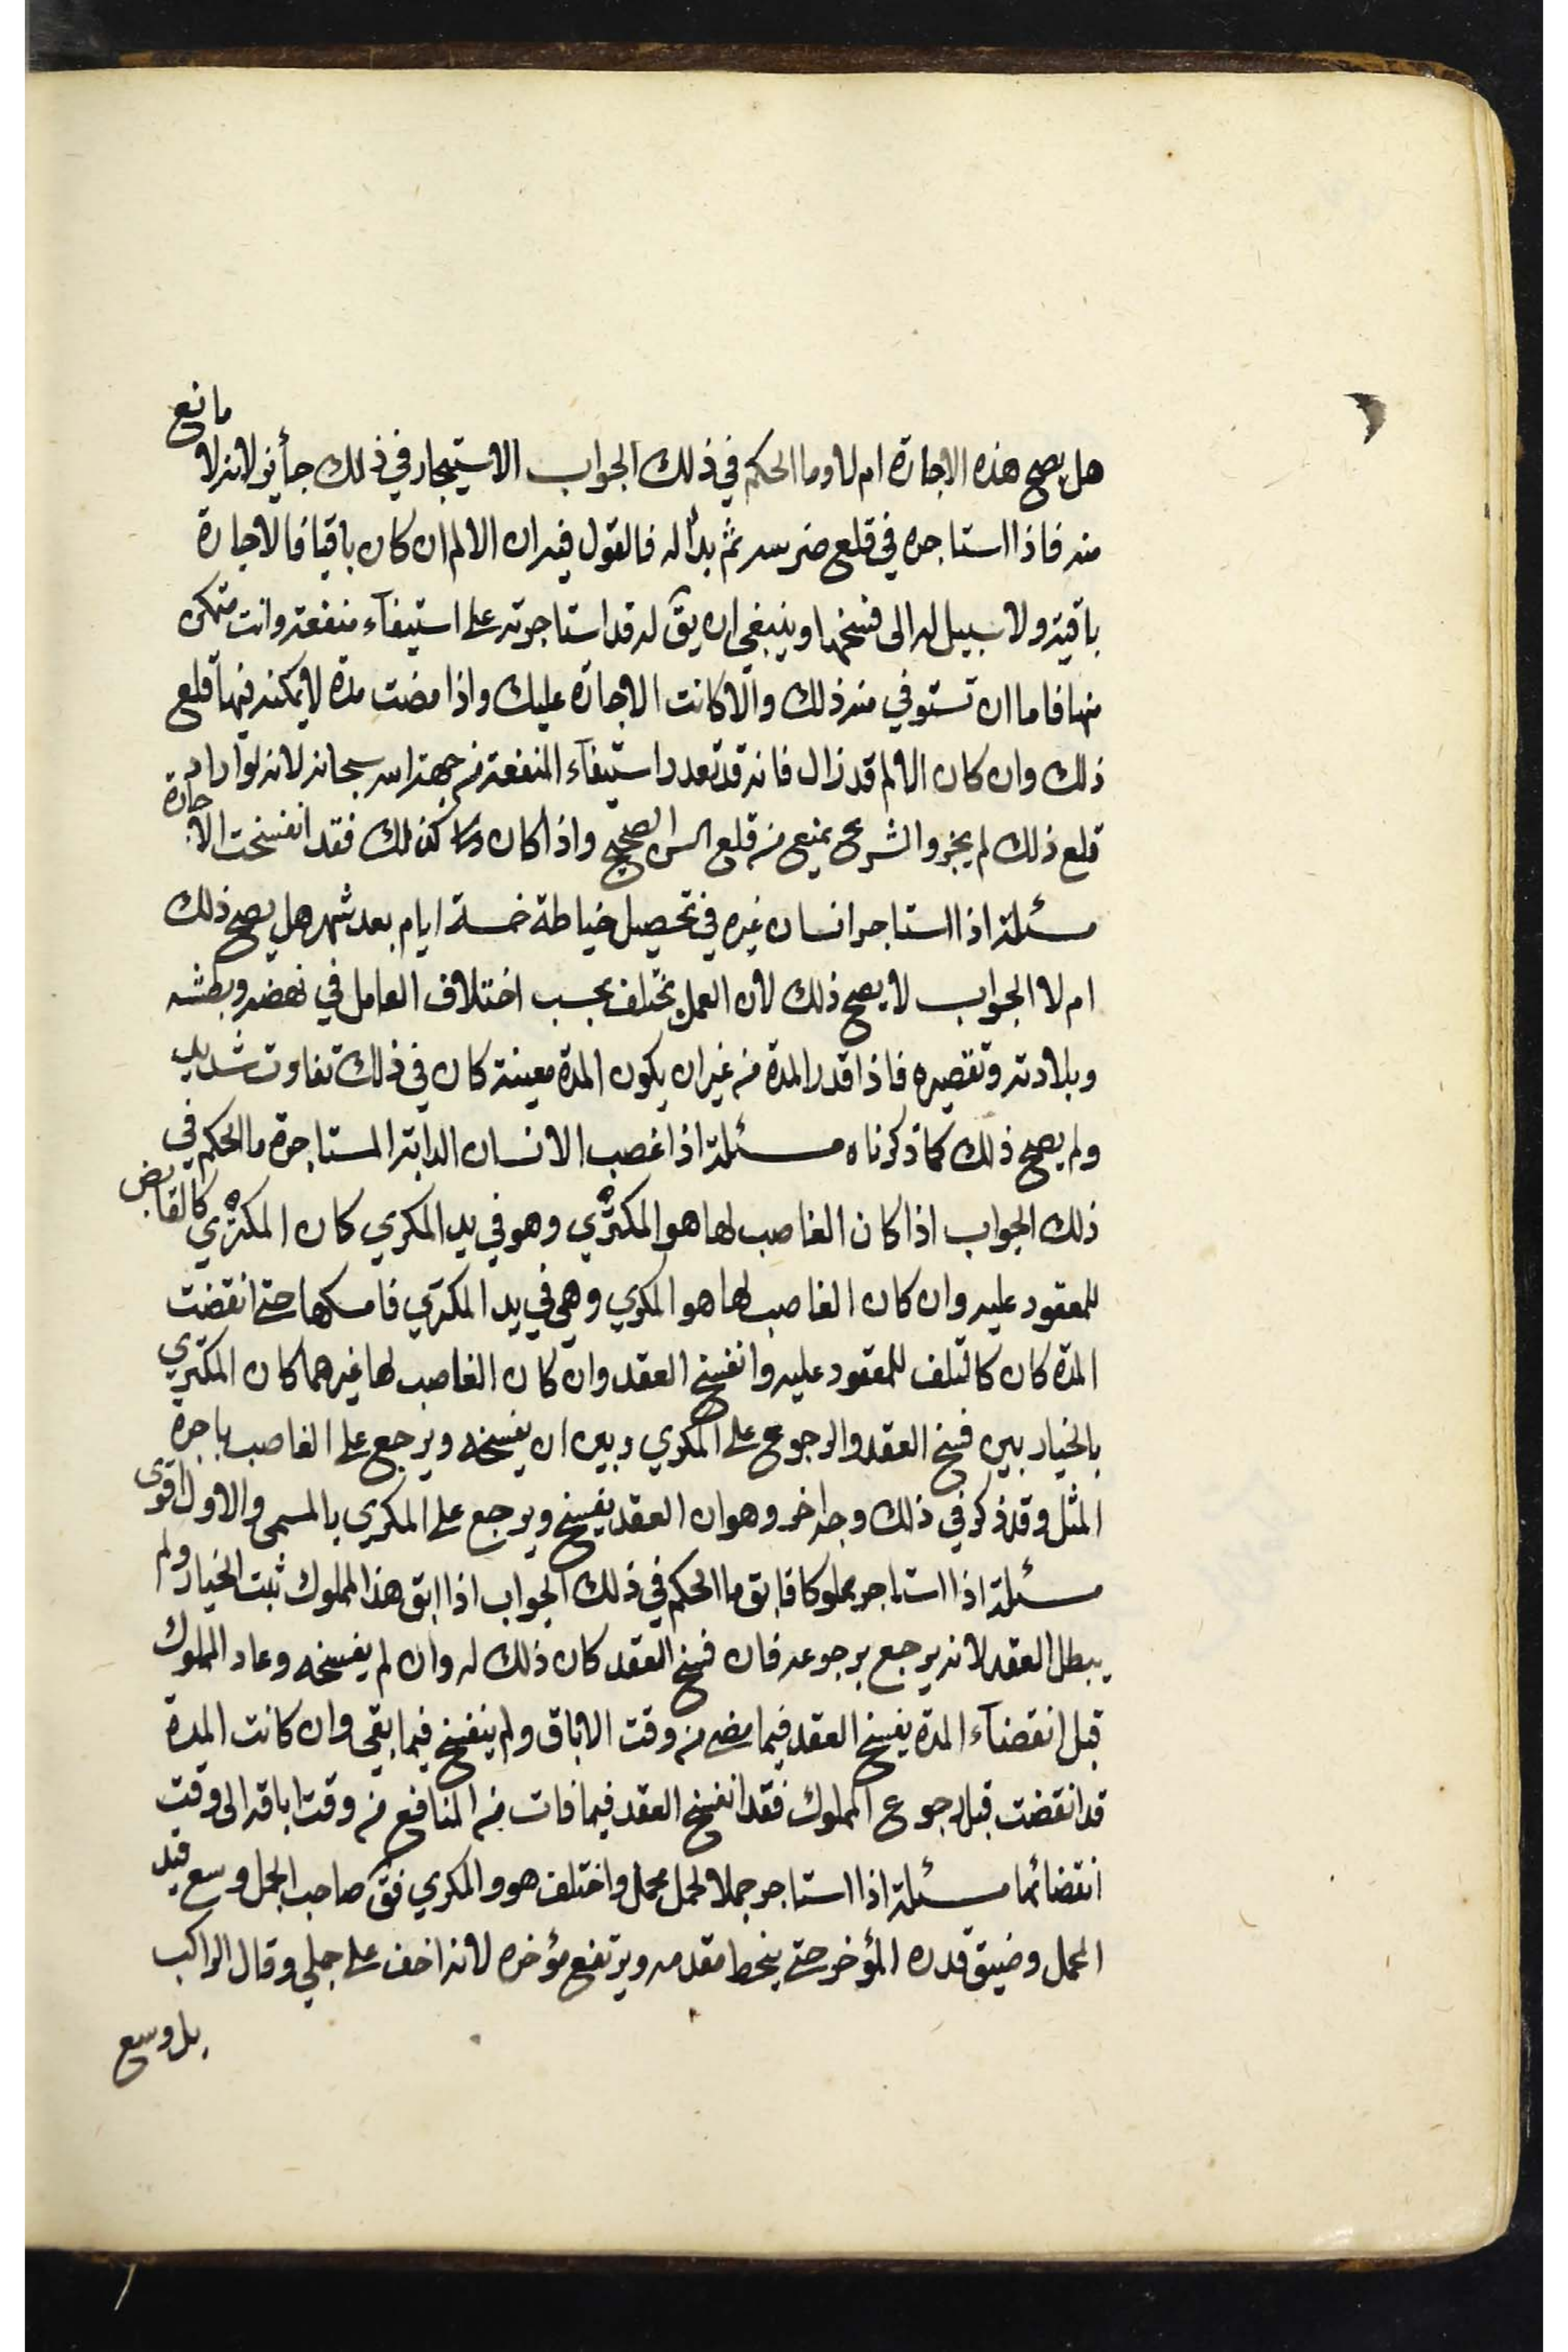 هل يصح هذه الاجارة ام لا وما الحكم في ذلك الجواب الاستيجار في ذلك جأيز لانه لا مانع
منه فاذا استاجره في قلع ضرسه ثم بدأ له فالقول فيه ان الالم ان كان باقيا فالاجارة
باقية ولا سبيل له الى فسخها وينبغي ان يقٓ له قد استاجرته على استيفآء منفعة وانت متمكن
منها فاما ان تستوفي منه ذلك والّا كانت الاجارة عليك واذا مضت مدة لا يمكنه فيها قلع
ذلك وان كان الالم قد زال فانه قد تعدر استيفآء المنفعة من جهة الله سبحانه لانه لو اراد
قلع ذلك لم يجز والشرع يمنع من قلع السن الصحيح واذا كان كذلك فقد انفسخت الاجارة
مسئلة اذا استاجر انسان غيره في تحصيل خياطة خمسة ايام بعد شهر هل يصح ذلك
ام لا الجواب لا يصح ذلك لان العمل يختلف بحسب اختلاف العامل في نهضه وبطشه
وبلادته وتقصيره فاذا قدر المدة من غير ان يكون المدة معينة كان في ذلك تفاوت شديد
ولم يصح ذلك كما ذكرناه مسئلة اذا غصب الانسان الدابة المستاجرة ما الحكم في
ذلك الجواب اذا كان الغاصب لها هو المكتري وهو في يد المكري كان المكتري كالقابض
للمعقود عليه وان كان الغاصب لها هو المكري وهي في يد المكتري فامسكها حتى انقضت
المدة كان كالتلف للمعقود عليه وانفسخ العقد وان كان الغاصب لها غيرهما كان المكتري
بالخيار بين فسخ العقد والرجوع على المكري وبين ان يفسخه ويرجع على الغاصب باجرة
المثل وقد ذكر في ذلك وجه اخر وهو ان العقد يفسخ ويرجع على المكري بالمسمى والاول اقوى
مسئلة اذا استاجر مملوكا فابق ما الحكم في ذلك الجواب اذا ابق هذا المملوك ثبت الخيار ولم
يبطل العقد لانه يرجع برجوعه فان فسخ العقد كان ذلك له وان لم يفسخه وعاد المملوك
قبل انقضآء المدة يفسخ العقد فيما مضى من وقت الاباق ولم ينفسخ فيما بقى وان كانت المدة
قد انقضت قبل رجوع المملوك فقد انفسخ العقد فيما فات من المنافع من وقت اباقه الى وقت
انقضائها مسئلة اذا استاجر جملا لحمل محمل واختلف هو والمكري فقٓ صاحب الجمل وسع قيد
المحمل وضيق قدره المؤخر حتى ينحط مقدمه ويرتفع مؤخره لانه اخف على جملي وقال الراكب
بل وسع